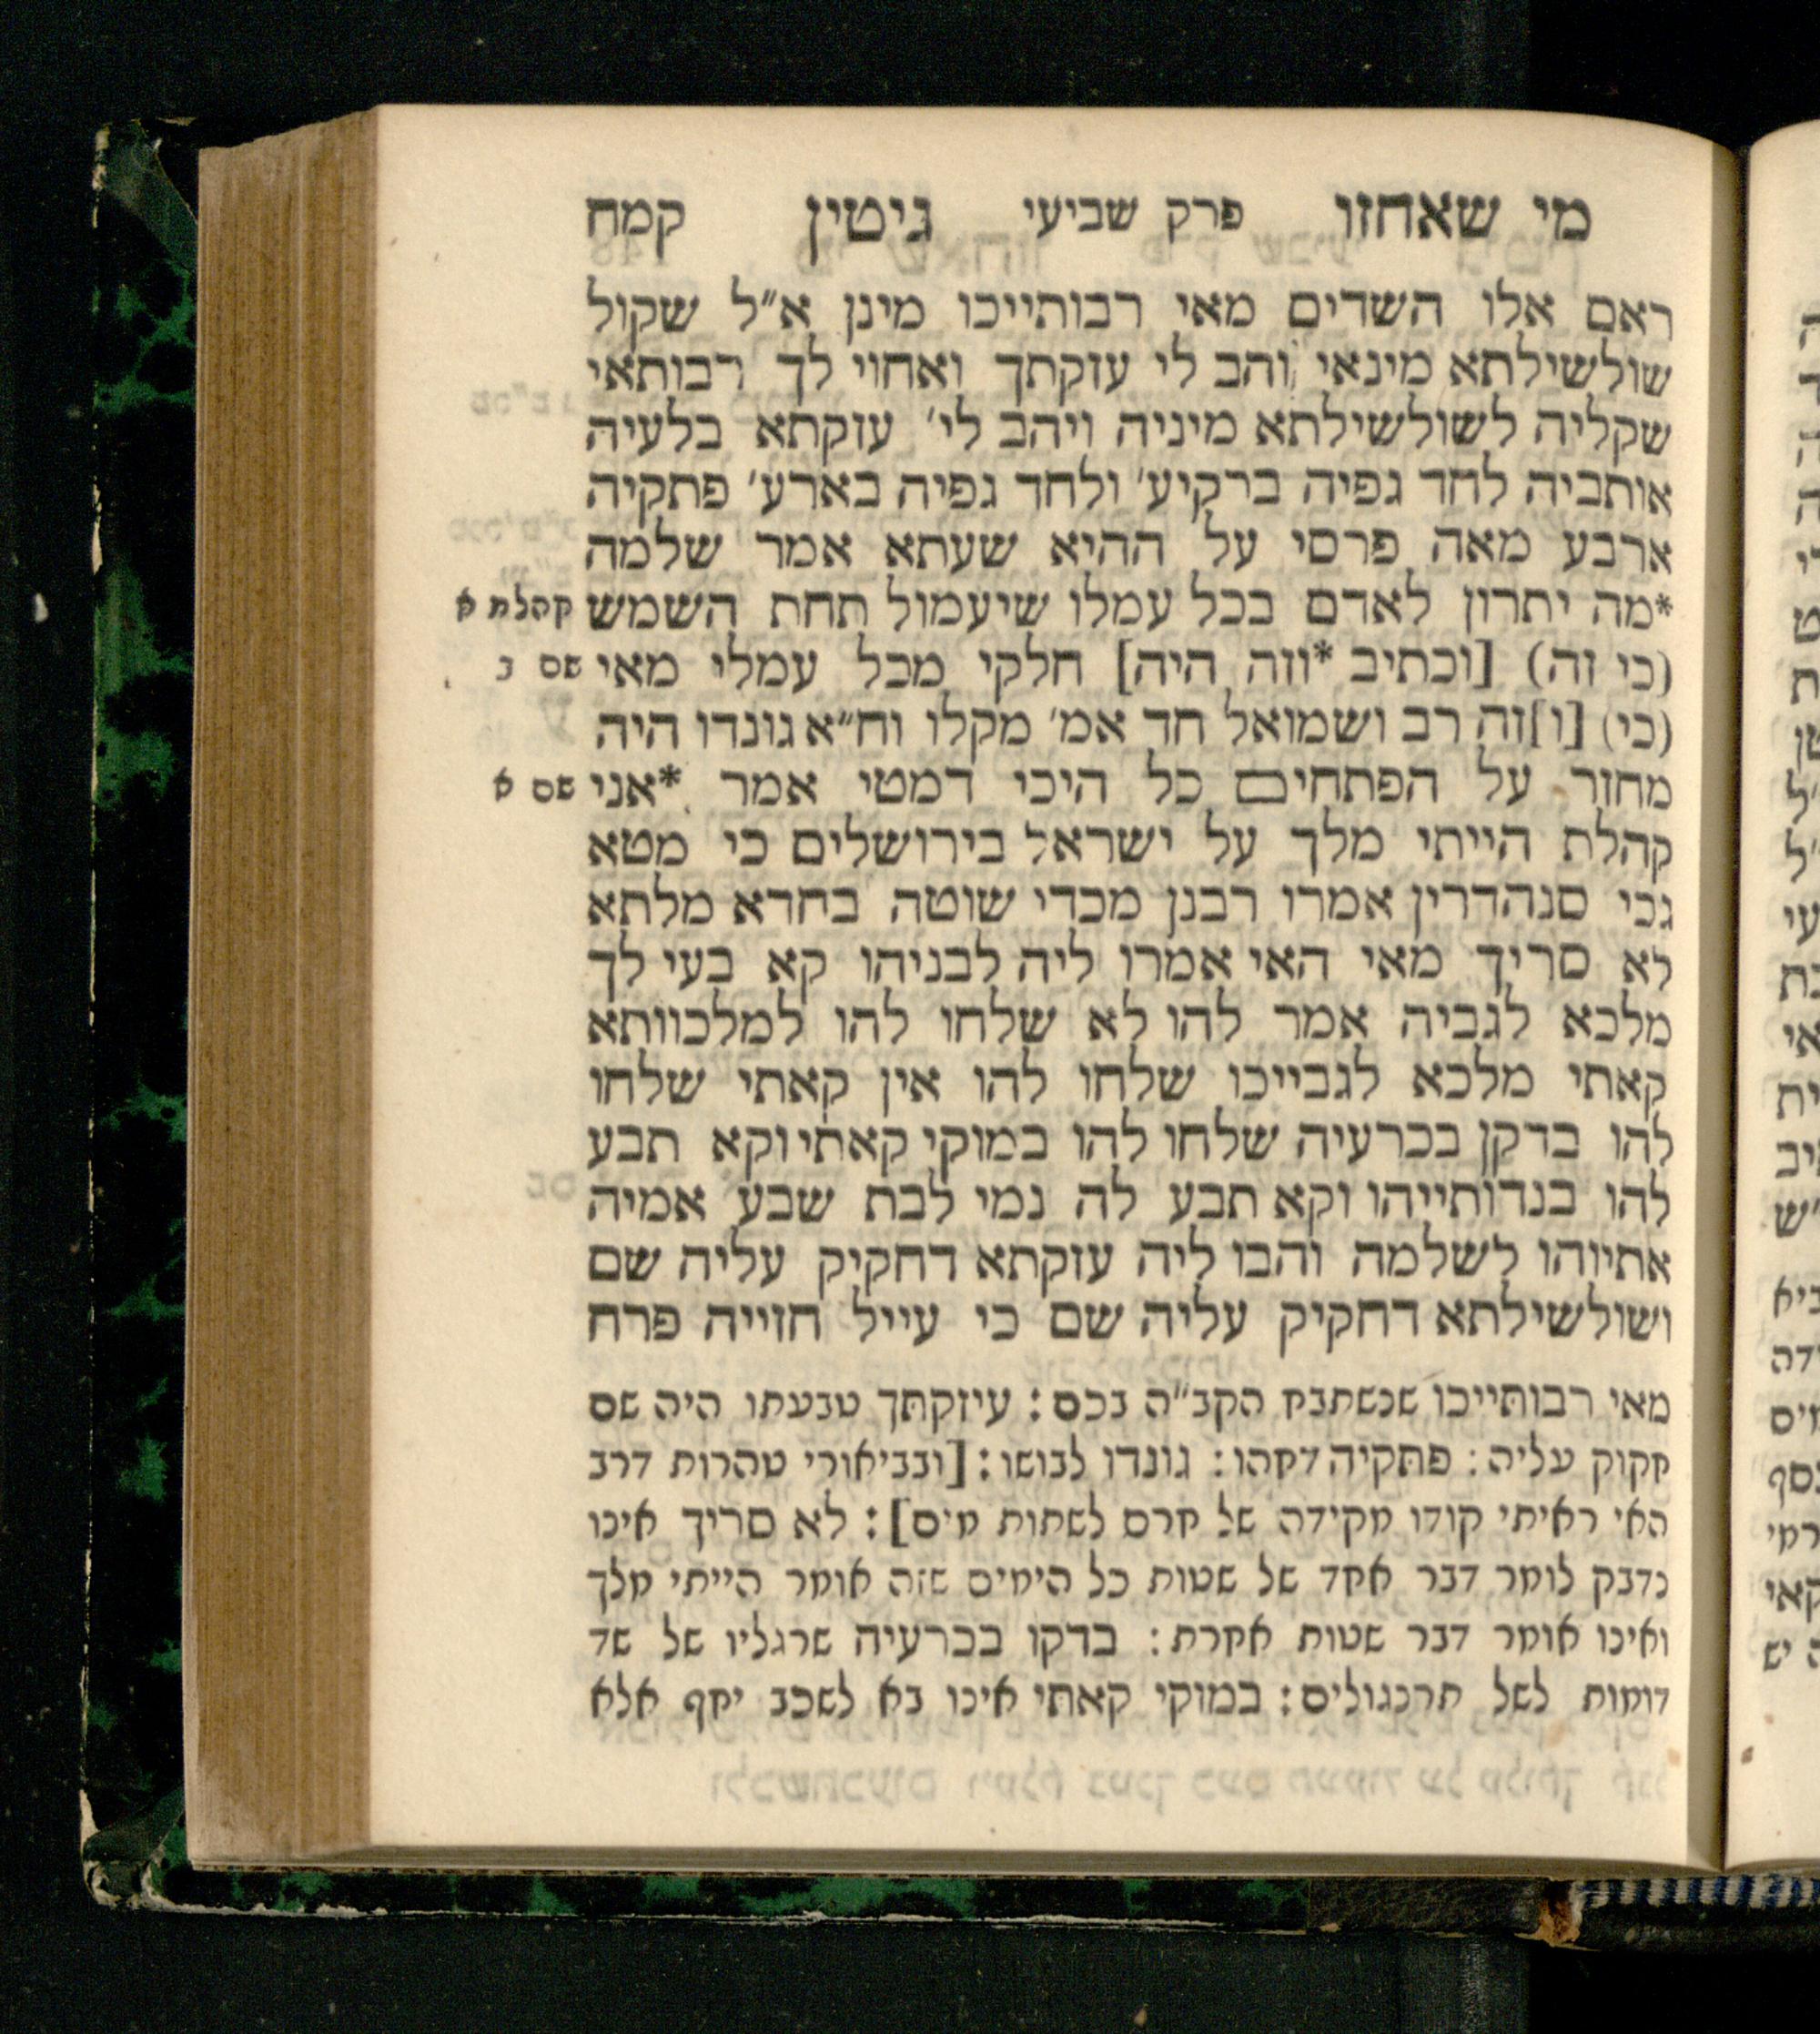 מי שאחזו פרק שביעי גיטין קמח
ראם אלו השדים מאי רבותייכו מינן א״ל שקול
שולשילתא מינאי והב לי עזקתך ואחוי לך רבותאי
שקליה לשולשילתא מיניה ויהב לי׳ עזקתא בלעיה
אותביה לחד גפיה ברקיע׳ ולחד גפיה בארע׳ פתקיה
ארבע מאה פרסי על ההיא שעתא אמר שלמה
*מה יתרון לאדם בכל עמלו שיעמול תחת השמש קהלת א
(כי זה) [וכתיב *וזה היה] חלקי מכל עמלי מאי שם ב
(כי) [ו]זה רב ושמואל חד אמ׳ מקלו וח״א גונדו היה
מחזר על הפתחים כל היכי דמטי אמר *אני שם א
קהלת הייתי מלך על ישראל בירושלים כי מטא
גבי סנהדרין אמרו רבנן מכדי שוטה בחדא מלתא
לא סריך מאי האי אמרו ליה לבניהו קא בעי לך
מלכא לגביה אמר להו לא שלחו להו למלכוותא
קאתי מלכא לגבייכו שלחו להו אין קאתי שלחו
להו בדקן בכרעיה שלחו להו במוקי קאתי וקא תבע
להו בנדותייהו וקא תבע לה נמי לבת שבע אמיה
אתיוהו לשלמה והבו ליה עזקתא דחקיק עליה שם
ושולשילתא דחקיק עליה שם כי עייל חזייה פרח
מאי רבותייכו שנשתבח הקב״ה בכם: עיזקתך טבעתו היה שם
חקוק עליה: פתקיה דחהו: גונדו לבושו: [ובביאורי טהרות דרב
האי ראיתי קודו מקידה של חרס לשתות מים]: לא סריך אינו
נדבק לומר דבר אחד של שטות כל הימים שזה אומר הייתי מלך
ואינו אומר דבר שטות אחרת: בדקו בכרעיה שרגליו של שד
דומות לשל תרנגולים: במוקי קאתי אינו בא לשכב יחף אלא